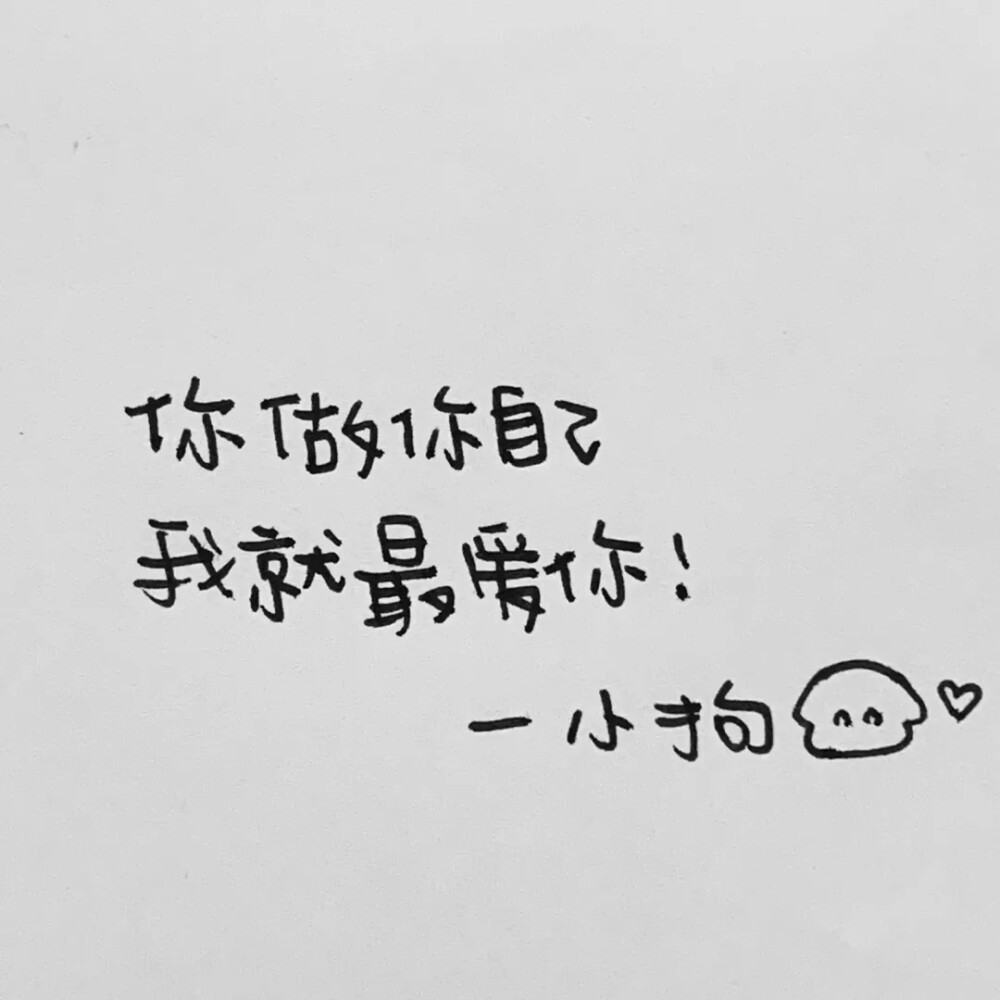 你做你自己
我就最爱你!
—小狗